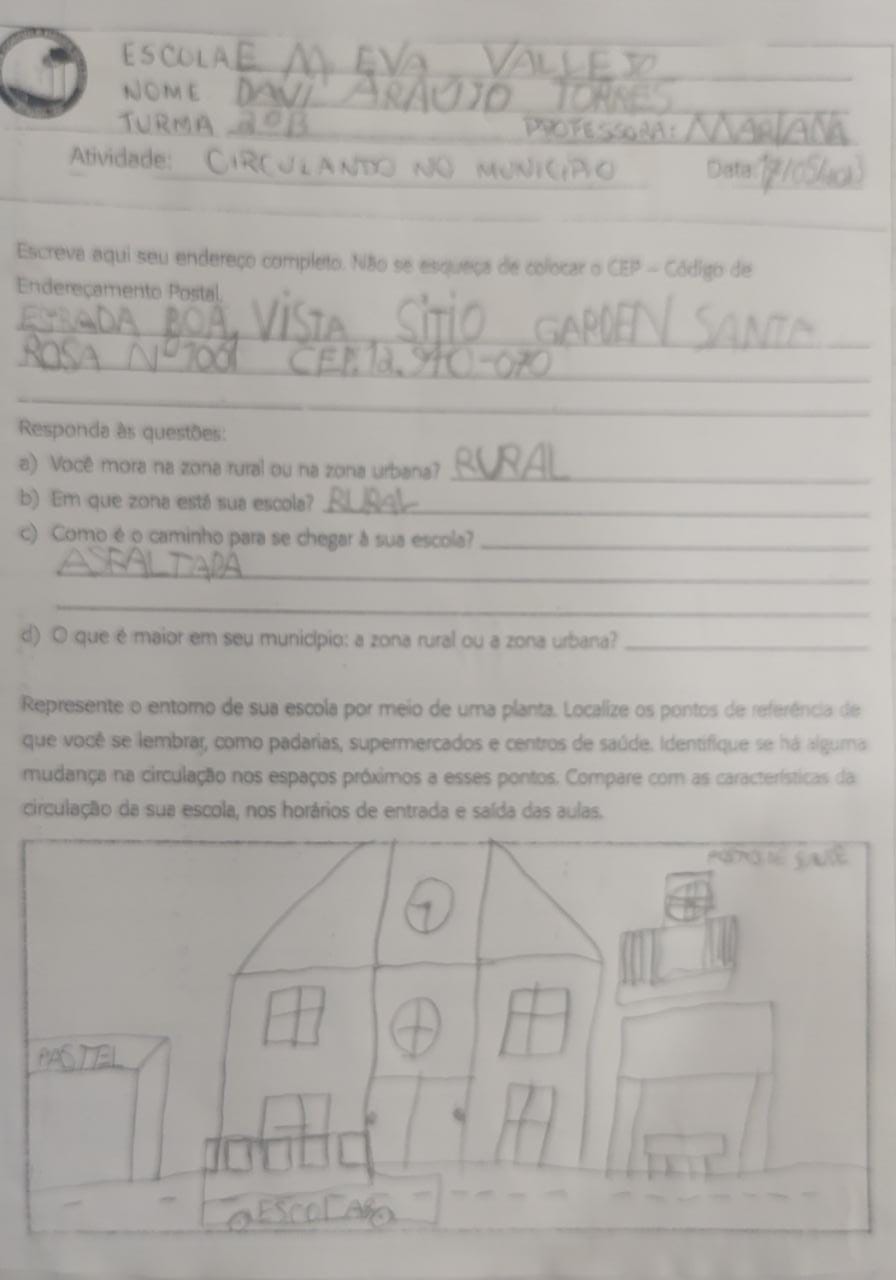 ESCOLA E M EVA VALLEJO
NOME DAVI ARAUJO TORRES
TURMA 2º B PROFESSORA: MARIANA
Atividade: CIRCULANDO NO MUNICIPIO Data: 17/05/
Escreva aqui seu endereço completo. Não se esqueça de colocar o CEP – Código de
Endereçamento Postal.
ESTRADA BOA VISTA SITIO GARDEN SANTA
ROSA Nº 7001 CEP. 12.940-070
Responda às questões:
a) Você mora na zona rural ou na zona urbana? RURAL
b) Em que zona está sua escola? RURAL
c) Como é o caminho para se chegar à sua escola?
ASFALTADA
d) O que é maior em seu município: a zona rural ou a zona urbana?
Represente o entorno de sua escola por meio de uma planta. Localize os pontos de referência de
que você se lembrar, como padarias, supermercados e centros de saúde. Identifique se há alguma
mudança na circulação nos espaços próximos a esses pontos. Compare com as características da
circulação da sua escola, nos horários de entrada e saída das aulas.
POSTO DE SAUDE
PASTEL
ESCOLA